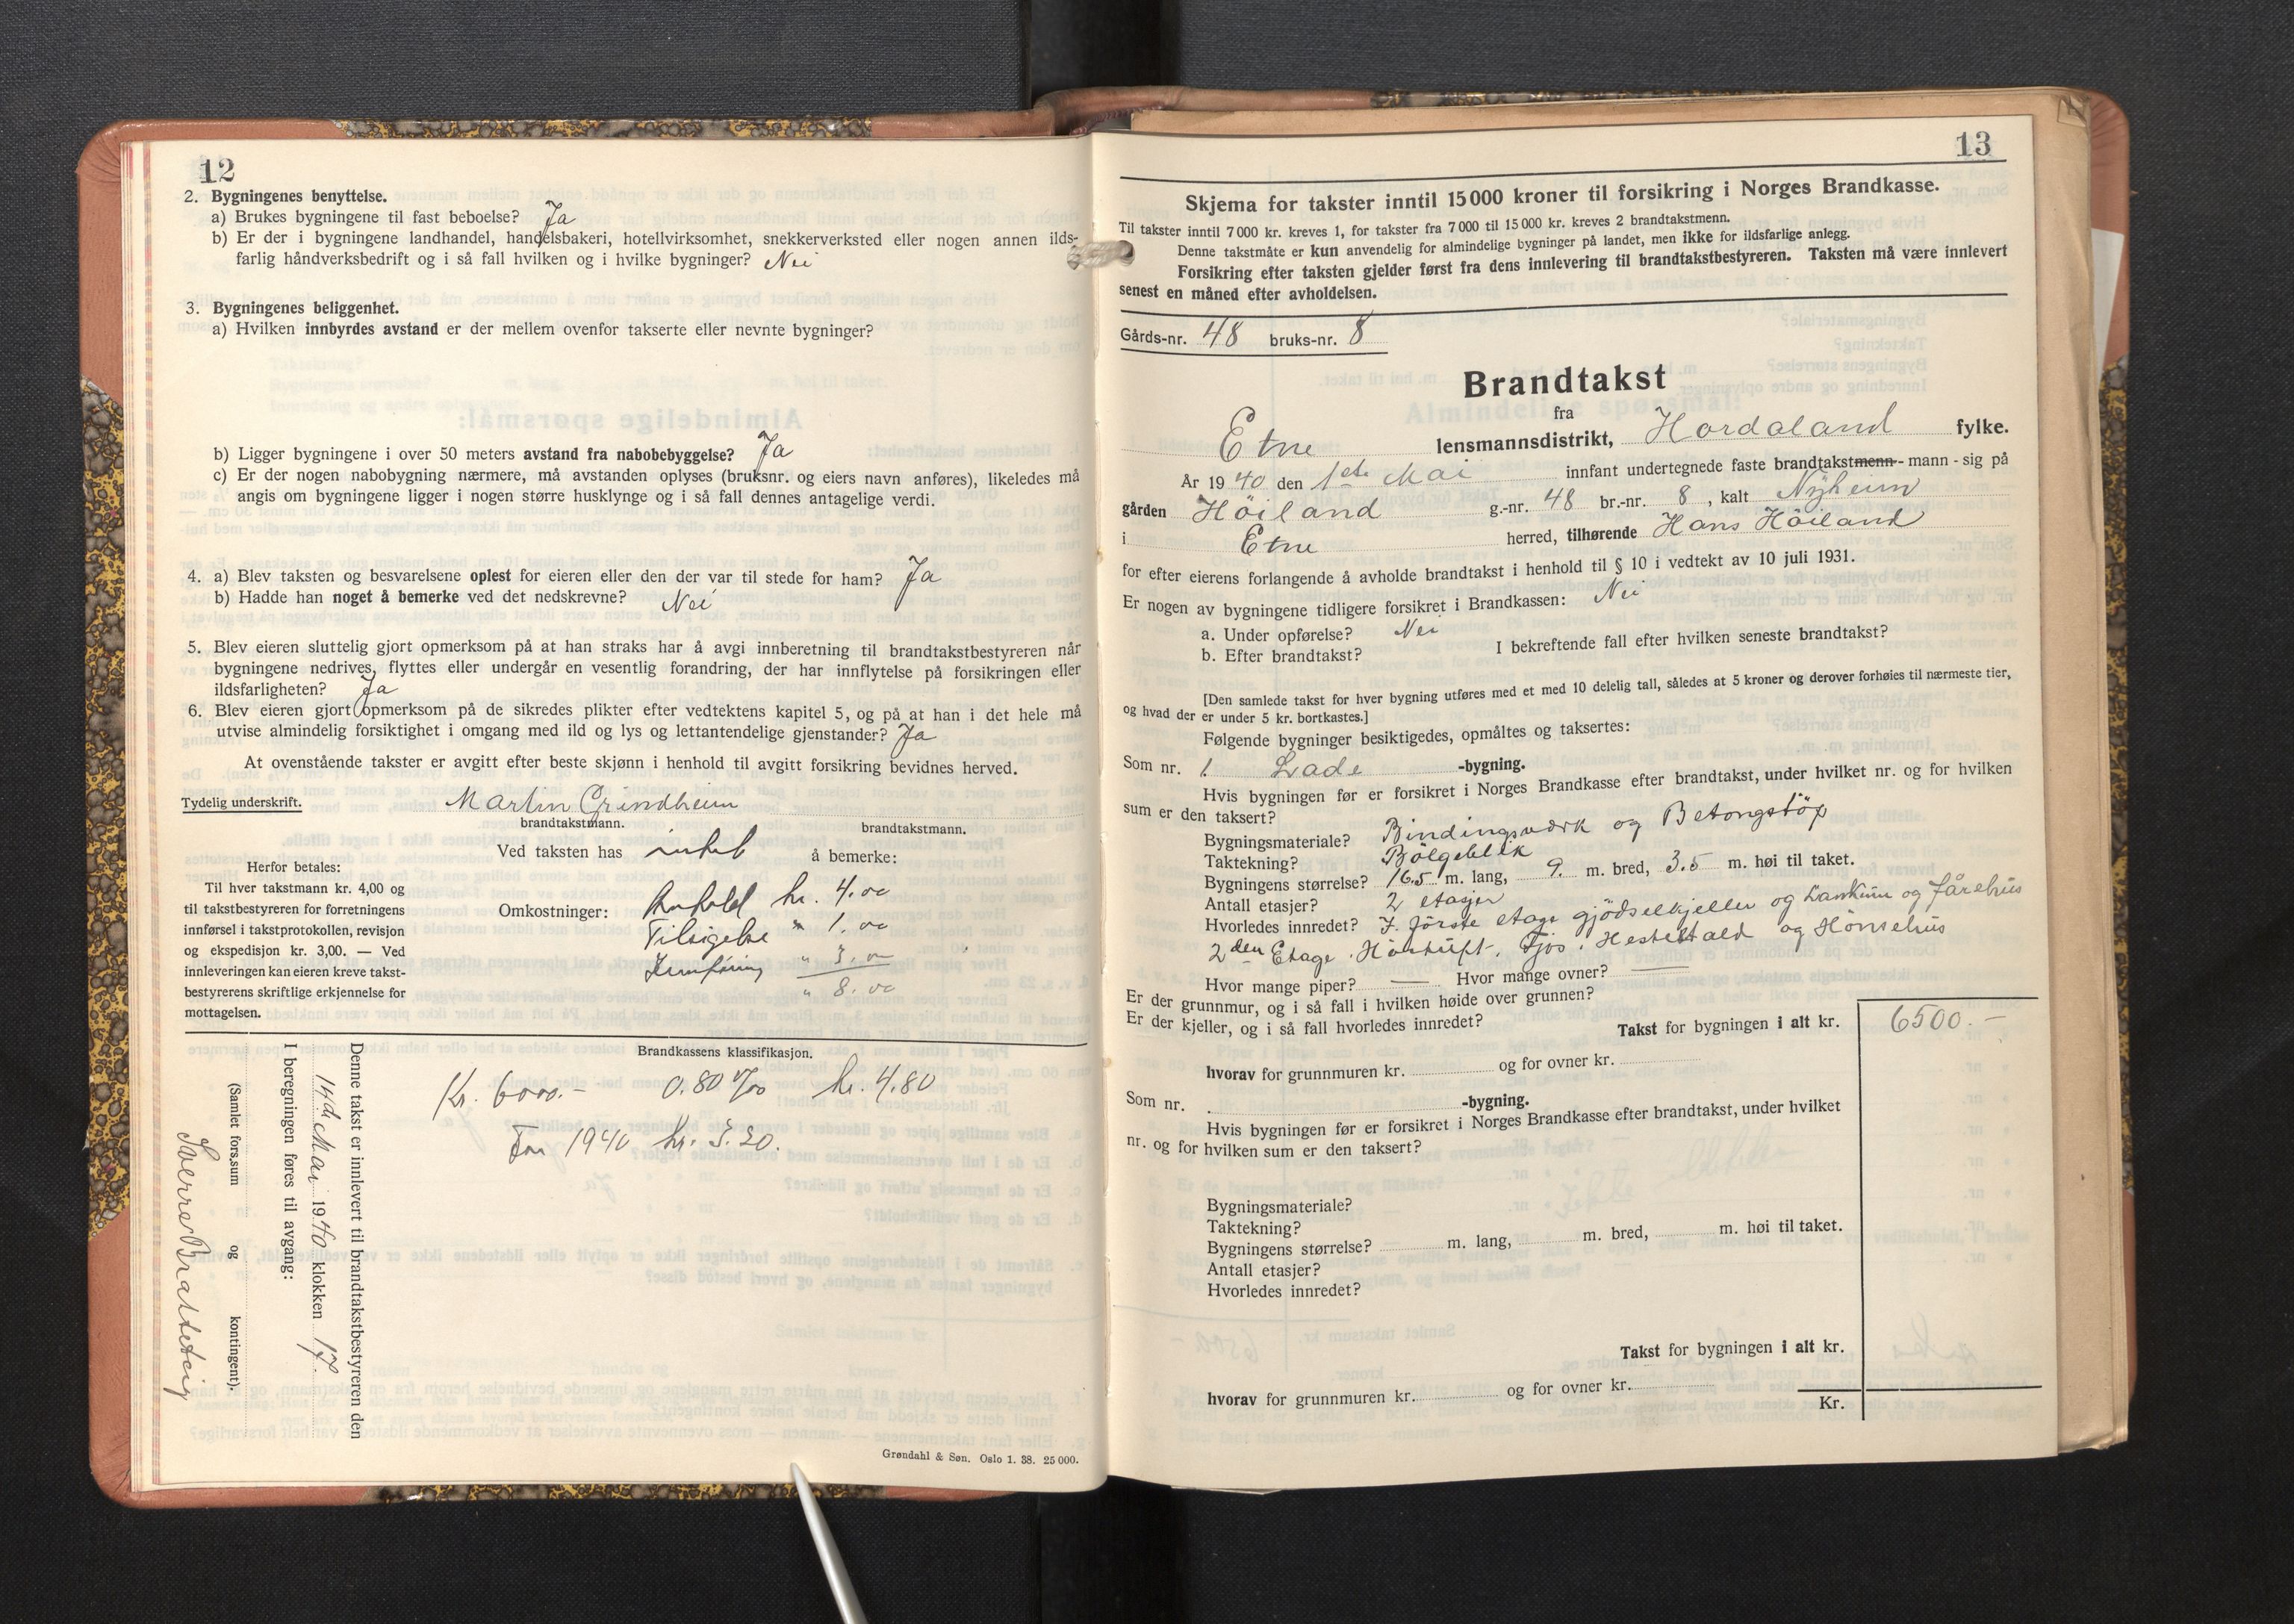 12
2. Bygningenes benyttelse.
a) Brukes bygningene til fast beboelse? Ja
b) Er der i bygningene landhandel, handelsbakeri, hotellvirksomhet, snekkerverksted eller nogen annen ilds-
farlig håndverksbedrift og i så fall hvilken og i hvilke bygninger? Nei
3. Bygningenes beliggenhet.
a) Hvilken innbyrdes avstand er der mellem ovenfor takserte eller nevnte bygninger?
b) Ligger bygningene i over 50 meters avstand fra nabobebyggelse? Ja
c) Er der nogen nabobygning nærmere, må avstanden oplyses (bruksnr. og eiers navn anføres), likeledes må
angis om bygningene ligger i nogen større husklynge og i så fall dennes antagelige verdi.
4. a) Blev taksten og besvarelsene oplest for eieren eller den der var til stede for ham? Ja
b) Hadde han noget å bemerke ved det nedskrevne? Nei
5. Blev eieren sluttelig gjort opmerksom på at han straks har å avgi innberetning til brandtakstbestyreren når
bygningene nedrives, flyttes eller undergår en vesentlig forandring, der har innflytelse på forsikringen eller
ildsfarligheten? Ja
6. Blev eieren gjort opmerksom på de sikredes plikter efter vedtektens kapitel 5, og på at han i det hele må
utvise almindelig forsiktighet i omgang med ild og lys og lettantendelige gjenstander? Ja
At ovenstående takster er avgitt efter beste skjønn i henhold til avgitt forsikring bevidnes herved.
Tydelig underskrift. Martin Grindheim
brandtakstmann. brandtakstmann.
Ved taksten has intet å bemerke:
Herfor betales:
Til hver takstmann kr. 4,00 og
til takstbestyreren for forretningens
innførsel i takstprotokollen, revisjon
og ekspedisjon kr. 3,00. — Ved
innleveringen kan eieren kreve takst-
bestyrerens skriftlige erkjennelse for
mottagelsen.
Omkostninger: kr. 4.00
Tilsigelse " 1.00
" 3.00
" 8.00
Brandkassens klassifikasjon.
Kr. 6000.- 0.80 ‰ kr. 4.80
For 1940 kr. 3.20.
Denne takst er innlevert til brandtakstbestyreren den
14de Mai 1940 klokken 17.
I beregningen føres til avgang:
(Samlet fors.sum og kontingent).
Sverre Bratteteig
Grøndahl & Søn. Oslo 1. 38. 25 000.
13
Skjema for takster inntil 15 000 kroner til forsikring i Norges Brandkasse.
Til takster inntil 7 000 kr. kreves 1, for takster fra 7 000 til 15 000 kr. kreves 2 brandtakstmenn.
Denne takstmåte er kun anvendelig for almindelige bygninger på landet, men ikke for ildsfarlige anlegg.
Forsikring efter taksten gjelder først fra dens innlevering til brandtakstbestyreren. Taksten må være innlevert
senest en måned efter avholdelsen.
Gårds-nr. 48 bruks-nr. 8
Brandtakst
fra
Etne lensmannsdistrikt, Hordaland fylke.
År 1940 den 1ste Mai innfant undertegnede faste brandtakstmenn - mann - sig på
gården Höiland g.-nr. 48 br.-nr. 8, kalt Nyheim
i Etne herred, tilhørende Hans Höiland
for efter eierens forlangende å avholde brandtakst i henhold til § 10 i vedtekt av 10 juli 1931.
Er nogen av bygningene tidligere forsikret i Brandkassen: Nei
a. Under opførelse? Nei
b. Efter brandtakst? I bekreftende fall efter hvilken seneste brandtakst?
[Den samlede takst for hver bygning utføres med et med 10 delelig tall, således at 5 kroner og derover forhøies til nærmeste tier,
og hvad der er under 5 kr. bortkastes.]
Følgende bygninger besiktigedes, opmåltes og taksertes:
Som nr. 1. Lade -bygning.
Hvis bygningen før er forsikret i Norges Brandkasse efter brandtakst, under hvilket nr. og for hvilken
sum er den taksert?
Bygningsmateriale? Bindingsværk og Betongstöp
Taktekning? Bölgeblik
Bygningens størrelse? 16.5 m. lang, 9. m. bred, 3.5 m. høi til taket.
Antall etasjer? 2 etasjer
Hvorledes innredet? I. förste etage gjödselkjeller og Lankum og Fårehus
2den Etage. Fjös. Hestestald og Hönsehus
Hvor mange piper? — Hvor mange ovner? —
Er der grunnmur, og i så fall i hvilken høide over grunnen?
Er der kjeller, og i så fall hvorledes innredet?
Takst for bygningen i alt kr. 6500.-
hvorav for grunnmuren kr. og for ovner kr.
Som nr. . -bygning.
Hvis bygningen før er forsikret i Norges Brandkasse efter brandtakst, under hvilket
nr. og for hvilken sum er den taksert?
Bygningsmateriale?
Taktekning?
Bygningens størrelse? m. lang, m. bred, m. høi til taket.
Antall etasjer?
Hvorledes innredet?
Takst for bygningen i alt kr.
hvorav for grunnmuren kr. og for ovner kr.
Kr.